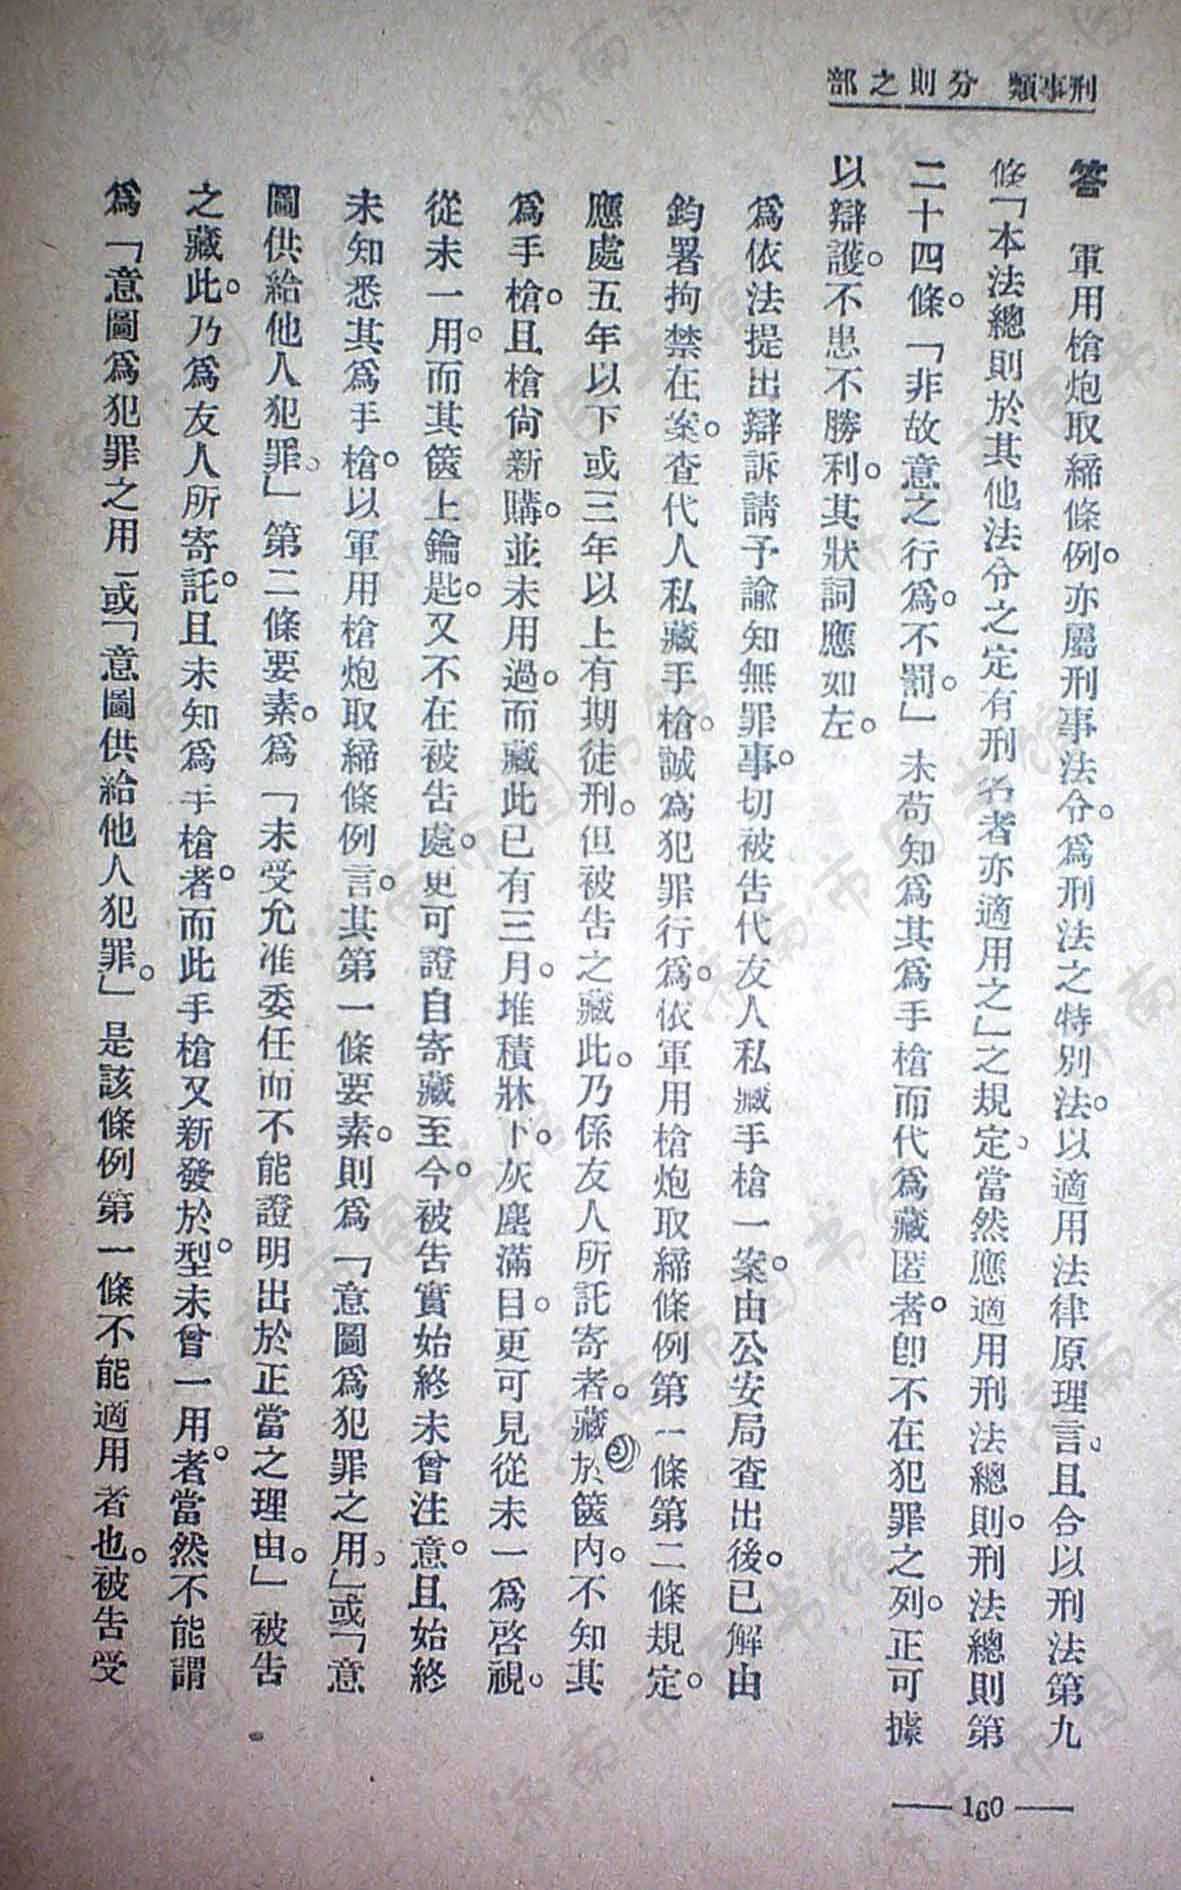 刑事類　分則之部
答　軍用槍炮取締條例。亦屬刑事法令。爲刑法之特別法。以適用法律原理言、且合以刑法第九
條「本法總則於其他法令之定有刑名者亦適用之」之規定、當然應適用刑法總則。刑法總則第
二十四條。「非故意之行爲。不罰。」未苟知爲其爲手槍而代爲藏匿者。卽不在犯罪之列。正可據
以辯護。不患不勝利。其狀詞應如左。
爲依法提出辯訴請予諭知無罪事。切被告代友人私藏手槍一案。由公安局查出後。已解由
鈞署拘禁在案。查代人私藏手槍。誠爲犯罪行爲。依軍用槍炮取締條例第一條第二條規定。
應處五年以下或三年以上有期徒刑。但被告之藏此。乃係友人所託寄者。藏於篋內。不知其
爲手槍。且槍尙新購。並未用過。而藏此已有三月。堆積牀下。灰塵滿目。更可見從未一爲啓視。
從未一用。而其篋上鑰匙。又不在被告處。更可證自寄藏至今。被告實始終未曾注意。且始終
未知悉其爲手槍。以軍用槍炮取締條例言。其第一條要素。則爲「意圖爲犯罪之用、」或「意
圖供給他人犯罪。」第二條要素。爲「未受允准委任而不能證明出於正當之理由。」被告
之藏此。乃爲友人所寄託。且未知爲手槍者。而此手槍又新發於型。未曾一用者。當然不能謂
爲「意圖爲犯罪之用」或「意圖供給他人犯罪。」是該條例第一條不能適用者也。被告受
160
濟南市图书馆